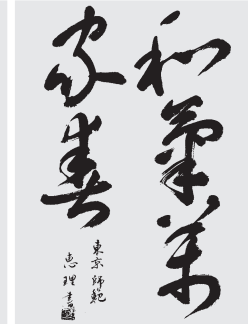 和氣萬
家春
東京師範
恵理書